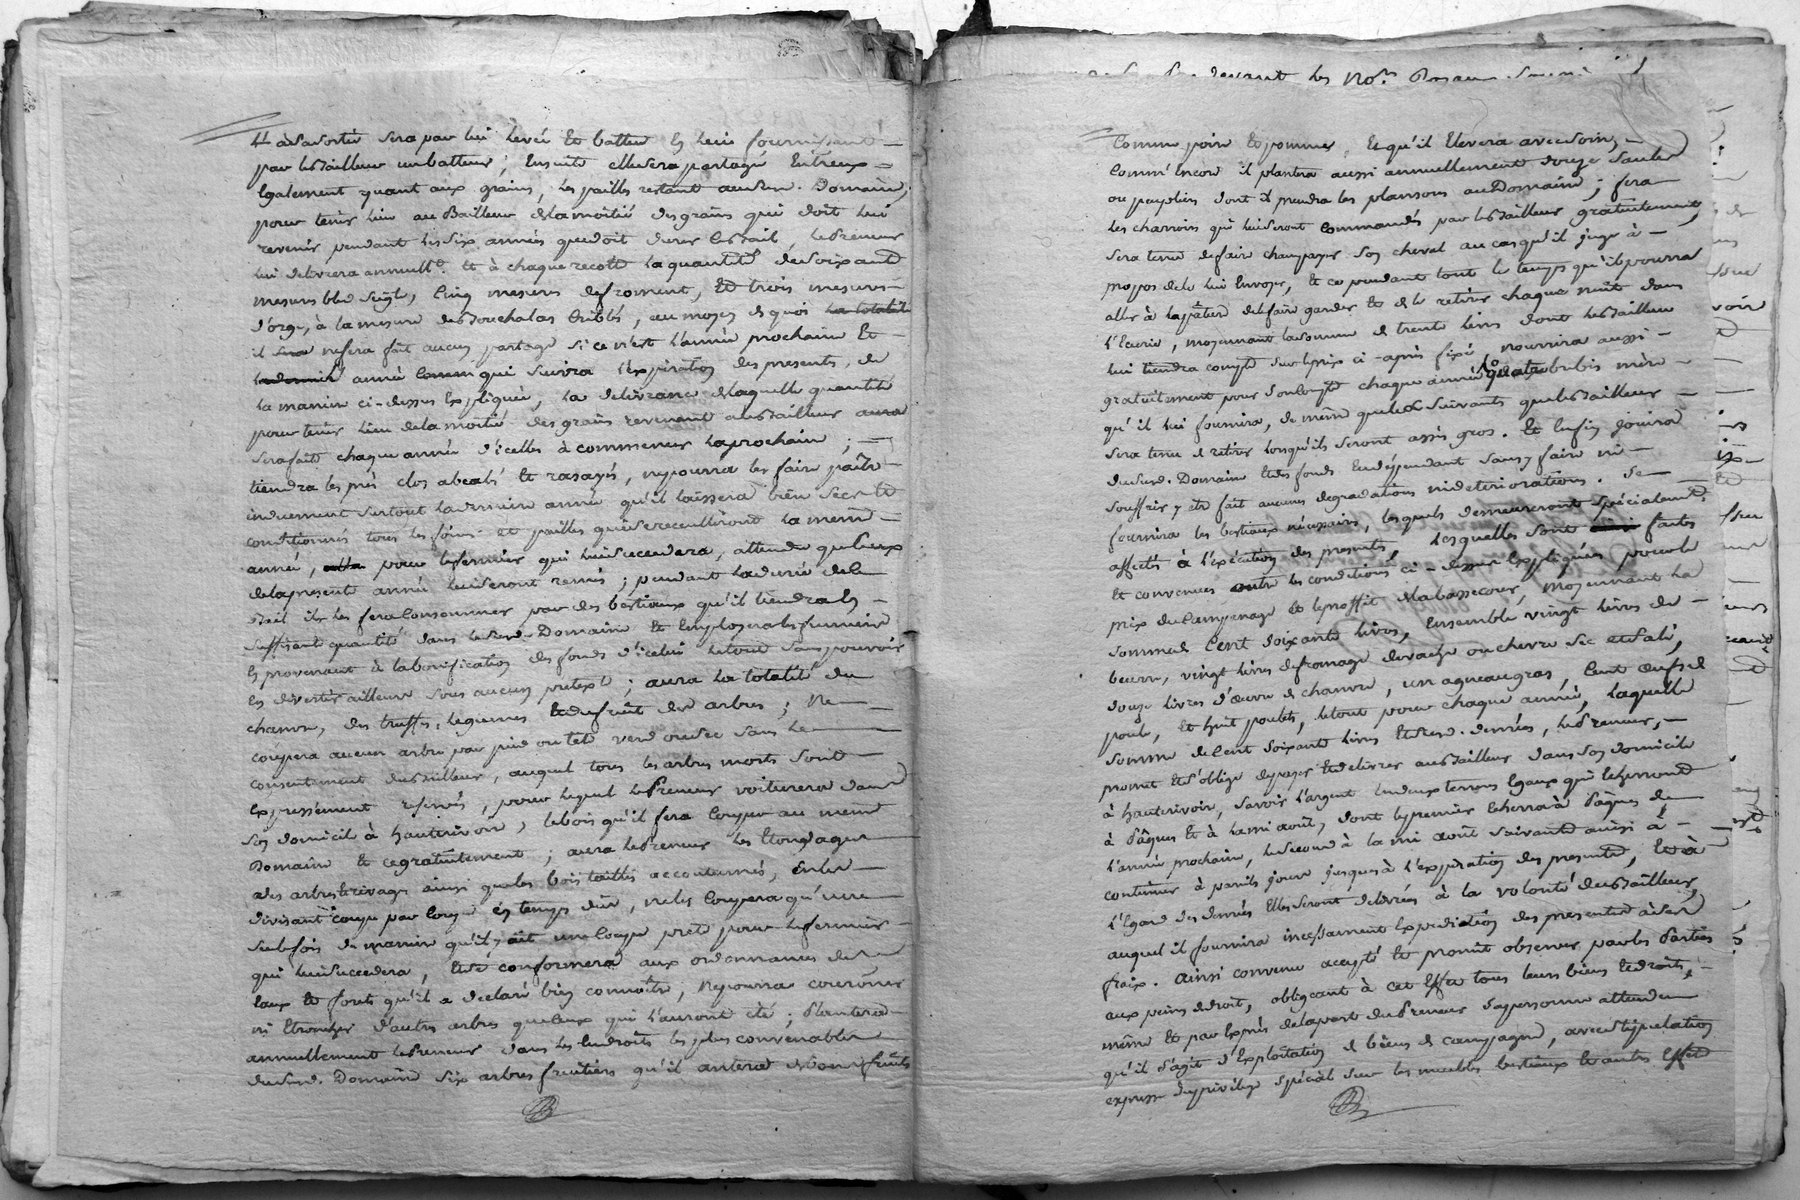 et à sa sortie sera par lui levée et battue en lui fournissant
par le Bailleur un batteur ; Ensuite elle sera partagée Entreux
Egalement quant aux grains, les pailles restant au susd. Domaine,
pour tenir lieu au Bailleur de la moitié des grains qui doit lui
revenir pendant les six années que doit durer le Bail, le Preneur
lui delivrera annuellt. et à chaque recolte la quantité de soixante
mesures bled seigle, Cinq mesures de froment, et trois mesures
d'orge, à la mesure de Bouchalas Criblés, au moyen de quoi la totalité
il sera ne sera fait aucun partage si ce n'est l'année prochaine et
la derniere année Comm qui suivra l'expiration des presentes, de
la maniere ci-dessus Expliquée, la delivrance de laquelle quantité
pour tenir lieu de la moitié des grains revenant au Bailleur aura
sera faite chaque année d'icelles à commencer la prochaine ;
tiendra les prés clos abealés et rasayés, ne pourra les faire paître
induement surtout la derniere année qu'il laissera bien secs et
conditionnés tous les foins et pailles qui se recuelliront la même
année, pour le fermier qui lui succedera, attendu que ceux
de la presente année lui seront remis ; pendant la durée de ce
Bail il les fera Consommer par des bestiaux qu'il tiendra En
suffisante quantité dans le susd. Domaine et Employera les fumiers
En provenant à la bonification des fonds d'icelui le tout sans pouvoir
les divertir ailleurs sous aucun pretexte ; aura la totalité du
chanvre, des truffes, legumes et du fruit des arbres ; Ne
coupera aucun arbre par pied ou tête verd ou sec sans le
consentement du Bailleur, auquel tous les arbres morts sont
Expressément reservés, pour lequel le Preneur voiturera dans
son domicile à hauterivoire, le bois qu'il fera Couper au même
Domaine et ce gratuitement ; aura le Preneur les Etondages
des arbres et rivages ainsi que les bois taillis accoutumés, En les
divisant coupe par Coupe és temps dûs, ne les Coupera qu'une
seule fois de maniere qu'il y ait une Coupe prete pour le fermier
qui lui succedera, et se conformera aux ordonnances des
Eaux et forets qu'il a declaré bien connoitre ; Ne pourra couronner
ni Etronçher d'autres arbres que ceux qui l'auront été ; Plantera
annuellement le Preneur dans les Endroits les plus convenables
du susd. Domaine six arbres fruitiers qu'il antera de bons fruits
devant les Nores
Comme poire et pommes, Et qu'il Elevera avec soin,
Comm' Encore il plantera aussi annuellement douze saules
ou peupliers dont il prendra les plansons au Domaine ; fera
les charrois qui lui seront commandés par le Bailleur gratuitement,
sera tenu de faire champayer son cheval au cas qu'il juge à
propos de le lui Envoyer, et ce pendant tout le temps qu'il pourra
aller à la pâture de le faire garder et de le retirer chaque nuit dans
l'Ecurie, moyennant la somme de trente livres dont le Bailleur
lui tiendra compte sur le prix ci-après fixé, nourrira aussi
gratuitement pour son Compte chaque année quatre brebis mère
qu'il lui fournira, de même que les suivants que le Bailleur
sera tenu de retirer lorsqu'ils seront assés gros. Et Enfin jouira
du susd. Domaine et des fonds En dépendant sans y faire ni
souffrir y etre fait aucunes degradations ni deteriorations. Se
fournira les bestiaux nécessaires, lesquels demeureront spécialement
affectés à l'exécution des presentes, lesquelles sont faites
Et convenues outre les conditions ci-dessus Expliquées pour le
prix du Campenage et le proffit de la basse cour, moyennant la
somme de Cent soixante livres, Ensemble vingt livres de
beurre, vingt livres de fromage de vache ou chevre sec et salé,
douze livres d'œuvre de chanvre, un agneau gras, Cent œufs de
poule, et huit poulets, le tout pour chaque année, laquelle
somme de Cent soixante livres et susd. denrées, le Preneur,
promet et s'oblige de payer et delivrer au Bailleur dans son domicile
à hauterivoire, savoir l'argent En deux termes Egaux qui Echerront
à Pâques et à la mi août, dont le premier Echerra à Pâques de
l'année prochaine, le second à la mi août suivante ainsi à
continuer à pareils jours jusques à l'expiration des presentes, Et à
l'Egard des denrées Elles seront delivrées à la volonté du Bailleur,
auquel il fournira incessamment Expedition des presentes à ses
fraix. Ainsi convenu accepté et promit observer par les Parties
aux peines de droit, obligeant à cet Effet tous leurs biens et droits,
même et par Exprès de la part du Preneur sa personne attendu
qu'il s'agit d'Exploitation de biens de campagne, avec stipulation
expresse de privilege spécial sur les meubles bestiaux et autres Effets